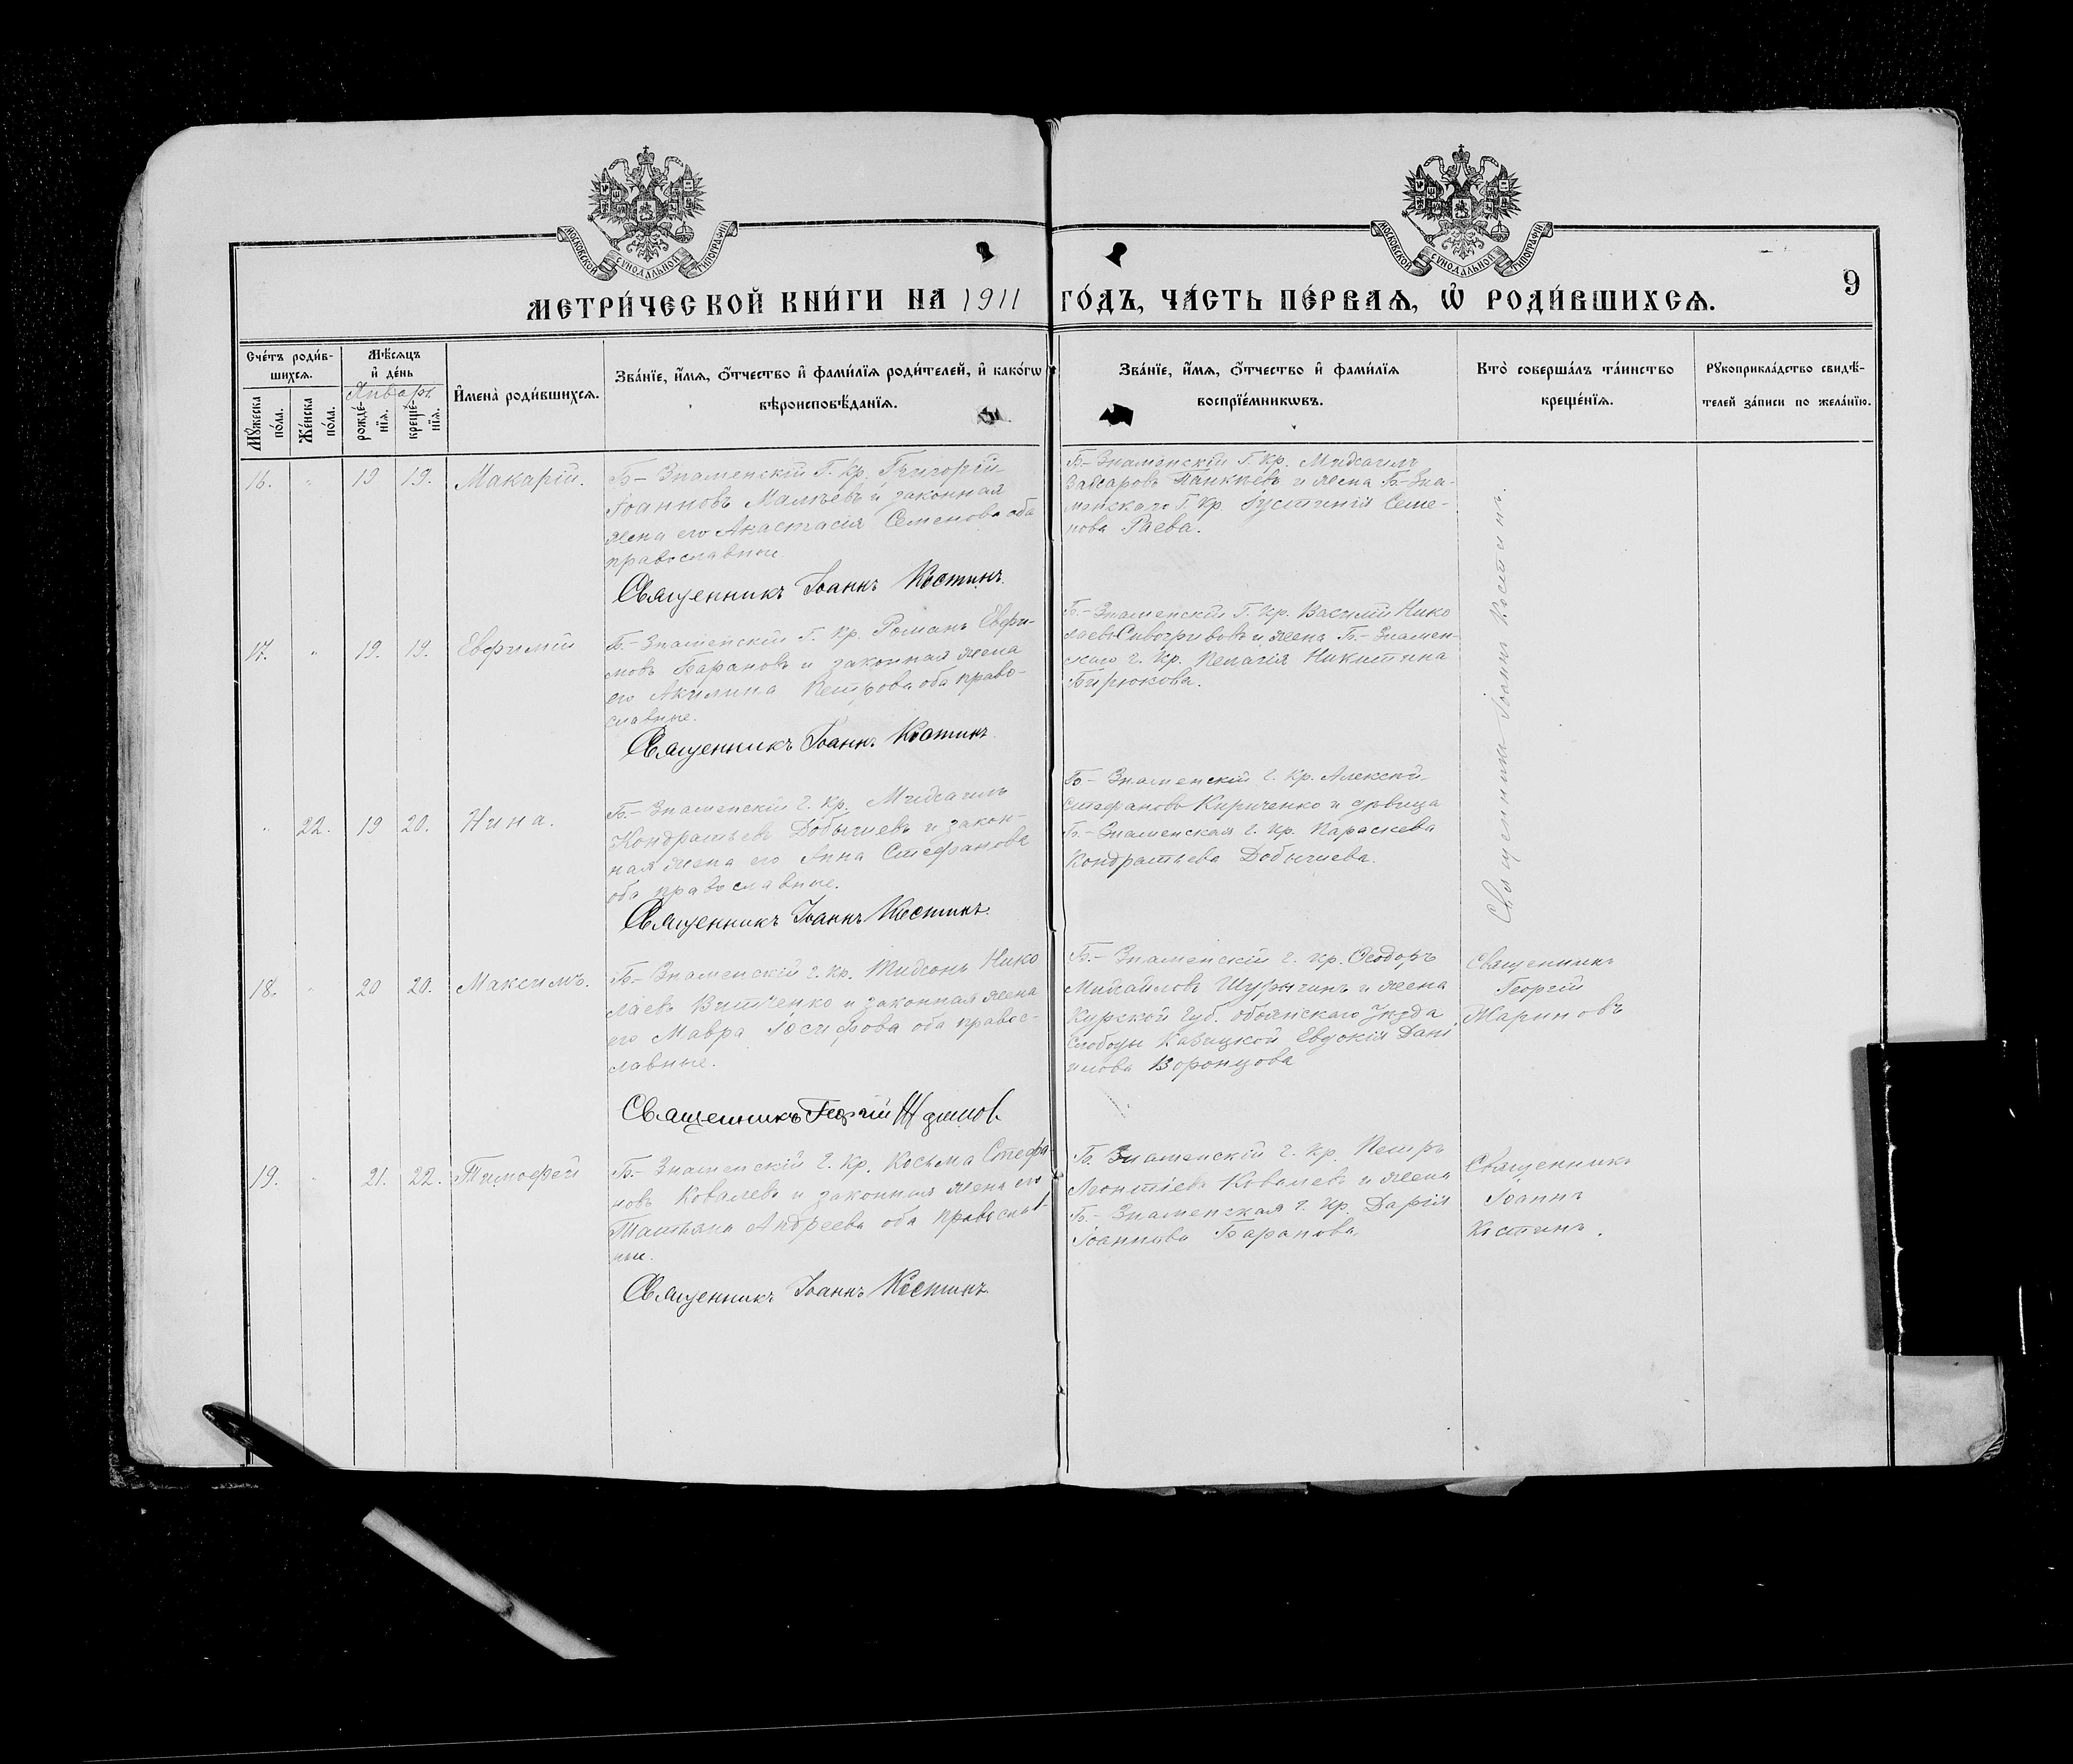 МОСКОВСКОЙ СѴНОДАЛЬНОЙ ТИПОГРАФІИ
МОСКОВСКОЙ СѴНОДАЛЬНОЙ ТИПОГРАФІИ
9
МЕТРИ́ЧЕСКОЙ КНИ́ГИ НА 1911 ГО́ДЪ, ЧА́СТЬ ПЕ́РВАѦ, Ѽ РОДИ́ВШИХСѦ.
Сче́тъ роди́в-
шихсѧ.
Мꙋ́жеска по́ла.
Же́нска по́ла.
Мѣ́сѧцъ
и҆ де́нь
Январь
рожде́-
нїѧ.
креще́-
нїѧ.
И҆мена̀ роди́вшихсѧ.
Зва́нїе, и҆́мѧ, ѻ҆́тчество и҆ фами́лїѧ роди́телей, и҆ како́гѡ
вѣроисповѣ́данїѧ.
Зва́нїе, и҆́мѧ, ѻ҆́тчество и҆ фами́лїѧ
воспрїе́мникѡвъ.
Кто̀ соверша́лъ та́инство
креще́нїѧ.
Рꙋкоприкла́дство свидѣ́-
телей за́писи по жела́нїю.
16. " 19 19. Макарій.
Б-Знаменскій Г. Кр. Григорій
Іоанновъ и законная
жена его Анастасія Семенова оба
православные.
Священникъ Іоаннъ Костинъ.
Б-Знаменскій Г. Кр. Михаилъ
и жена Б-Зна-
менскаго Г. Кр. Іустинія Семе-
нова Раева.
Священникъ Іоаннъ Костинъ.
17. " 19. 19. Евфимій
Б-Знаменскій Г. Кр. Романъ Евфи-
мовъ Барановъ и законная жена
его Акилина Петрова оба право-
славные.
Священникъ Іоаннъ Костинъ
Б-Знаменскій Г. Кр. Василій Нико
лаевъ Сивогривовъ и жена Б-Знамен-
скаго г. Кр. Пелагія Никитина
Бирюкова.
" 22. 19 20. Нина.
Б-Знаменскій г. Кр. Михаилъ
Кондратьевъ Добычиевъ и закон-
ная жена его Анна Стефанова
оба православные.
Священникъ Іоаннъ Костинъ.
Б-Знаменскій г. Кр. Алексѣй
Стефановъ Кириченко и дѣвица
Б-Знаменская г. Кр. Параскева
Кондратьева Добычиева.
18. " 20 20. Максимъ.
Б-Знаменскій г. Кр. Нико
лаевъ Витченко и законная жена
его Мавра Іосифова оба правос-
лавные.
Священникъ Георгій
Б-Знаменскій г. Кр. Ѳеодоръ
Михайловъ Шурыгинъ и жена
Курской Губ. Обоянскаго Уѣзда
Слободы Казацкой Евдокія Дані
илова Воронцова
Священникъ
Георгій
19. " 21. 22. Тимофей
Б-Знаменскій г. Кр. Косьма Стефа-
новъ Ковалевъ и законная жена его
Татьяна Андреева оба православ-
ные.
Священникъ Іоаннъ Костинъ.
Б. Знаменскій г. Кр. Петръ
Леонтіевъ Ковалевъ и жена
Б-Знаменская г. Кр. Дарія
Іоаннова Баранова.
Священникъ
Іоаннъ
Костинъ.